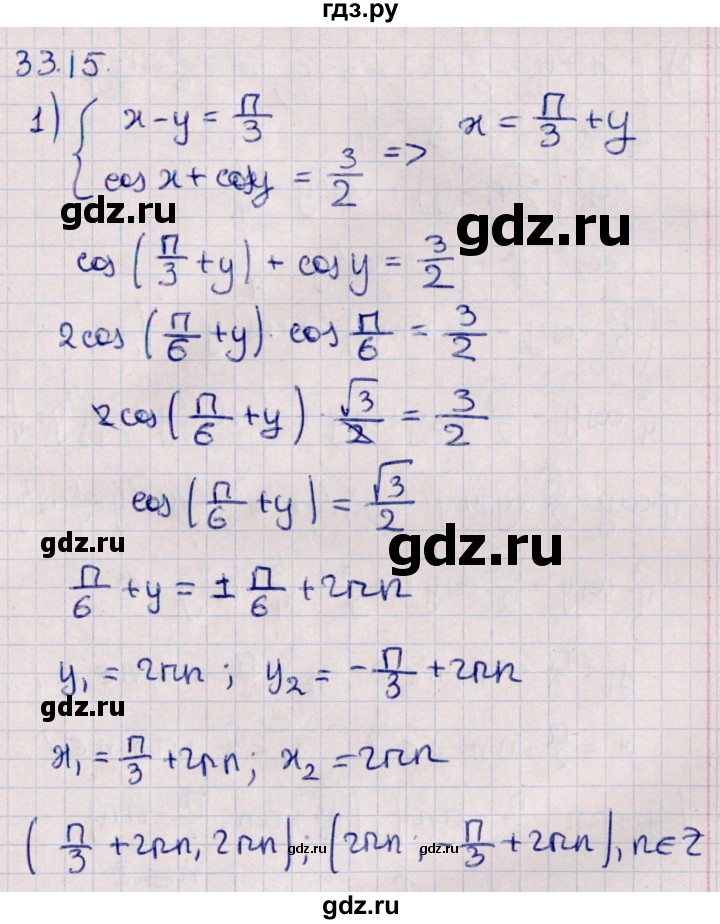 гдз.ру
33.15.
1) { x - y = π/3
cos x + cos y = 3/2 => x = π/3 + y
gdz.ru
gdz.ru
cos(π/3 + y) + cos y = 3/2
2cos(π/6 + y) · cos π/6 = 3/2
2cos(π/6 + y) · √3/2 = 3/2
cos(π/6 + y) = √3/2
gdz.ru
gdz.ru
π/6 + y = ± π/6 + 2πn
y₁ = 2πn ; y₂ = - π/3 + 2πn
gdz.ru
x₁ = π/3 + 2πn ; x₂ = 2πn
(π/3 + 2πn, 2πn); (2πn ; - π/3 + 2πn), n ∈ Z
gdz.ru
gdz.ru
gdz.ru
gdz.ru